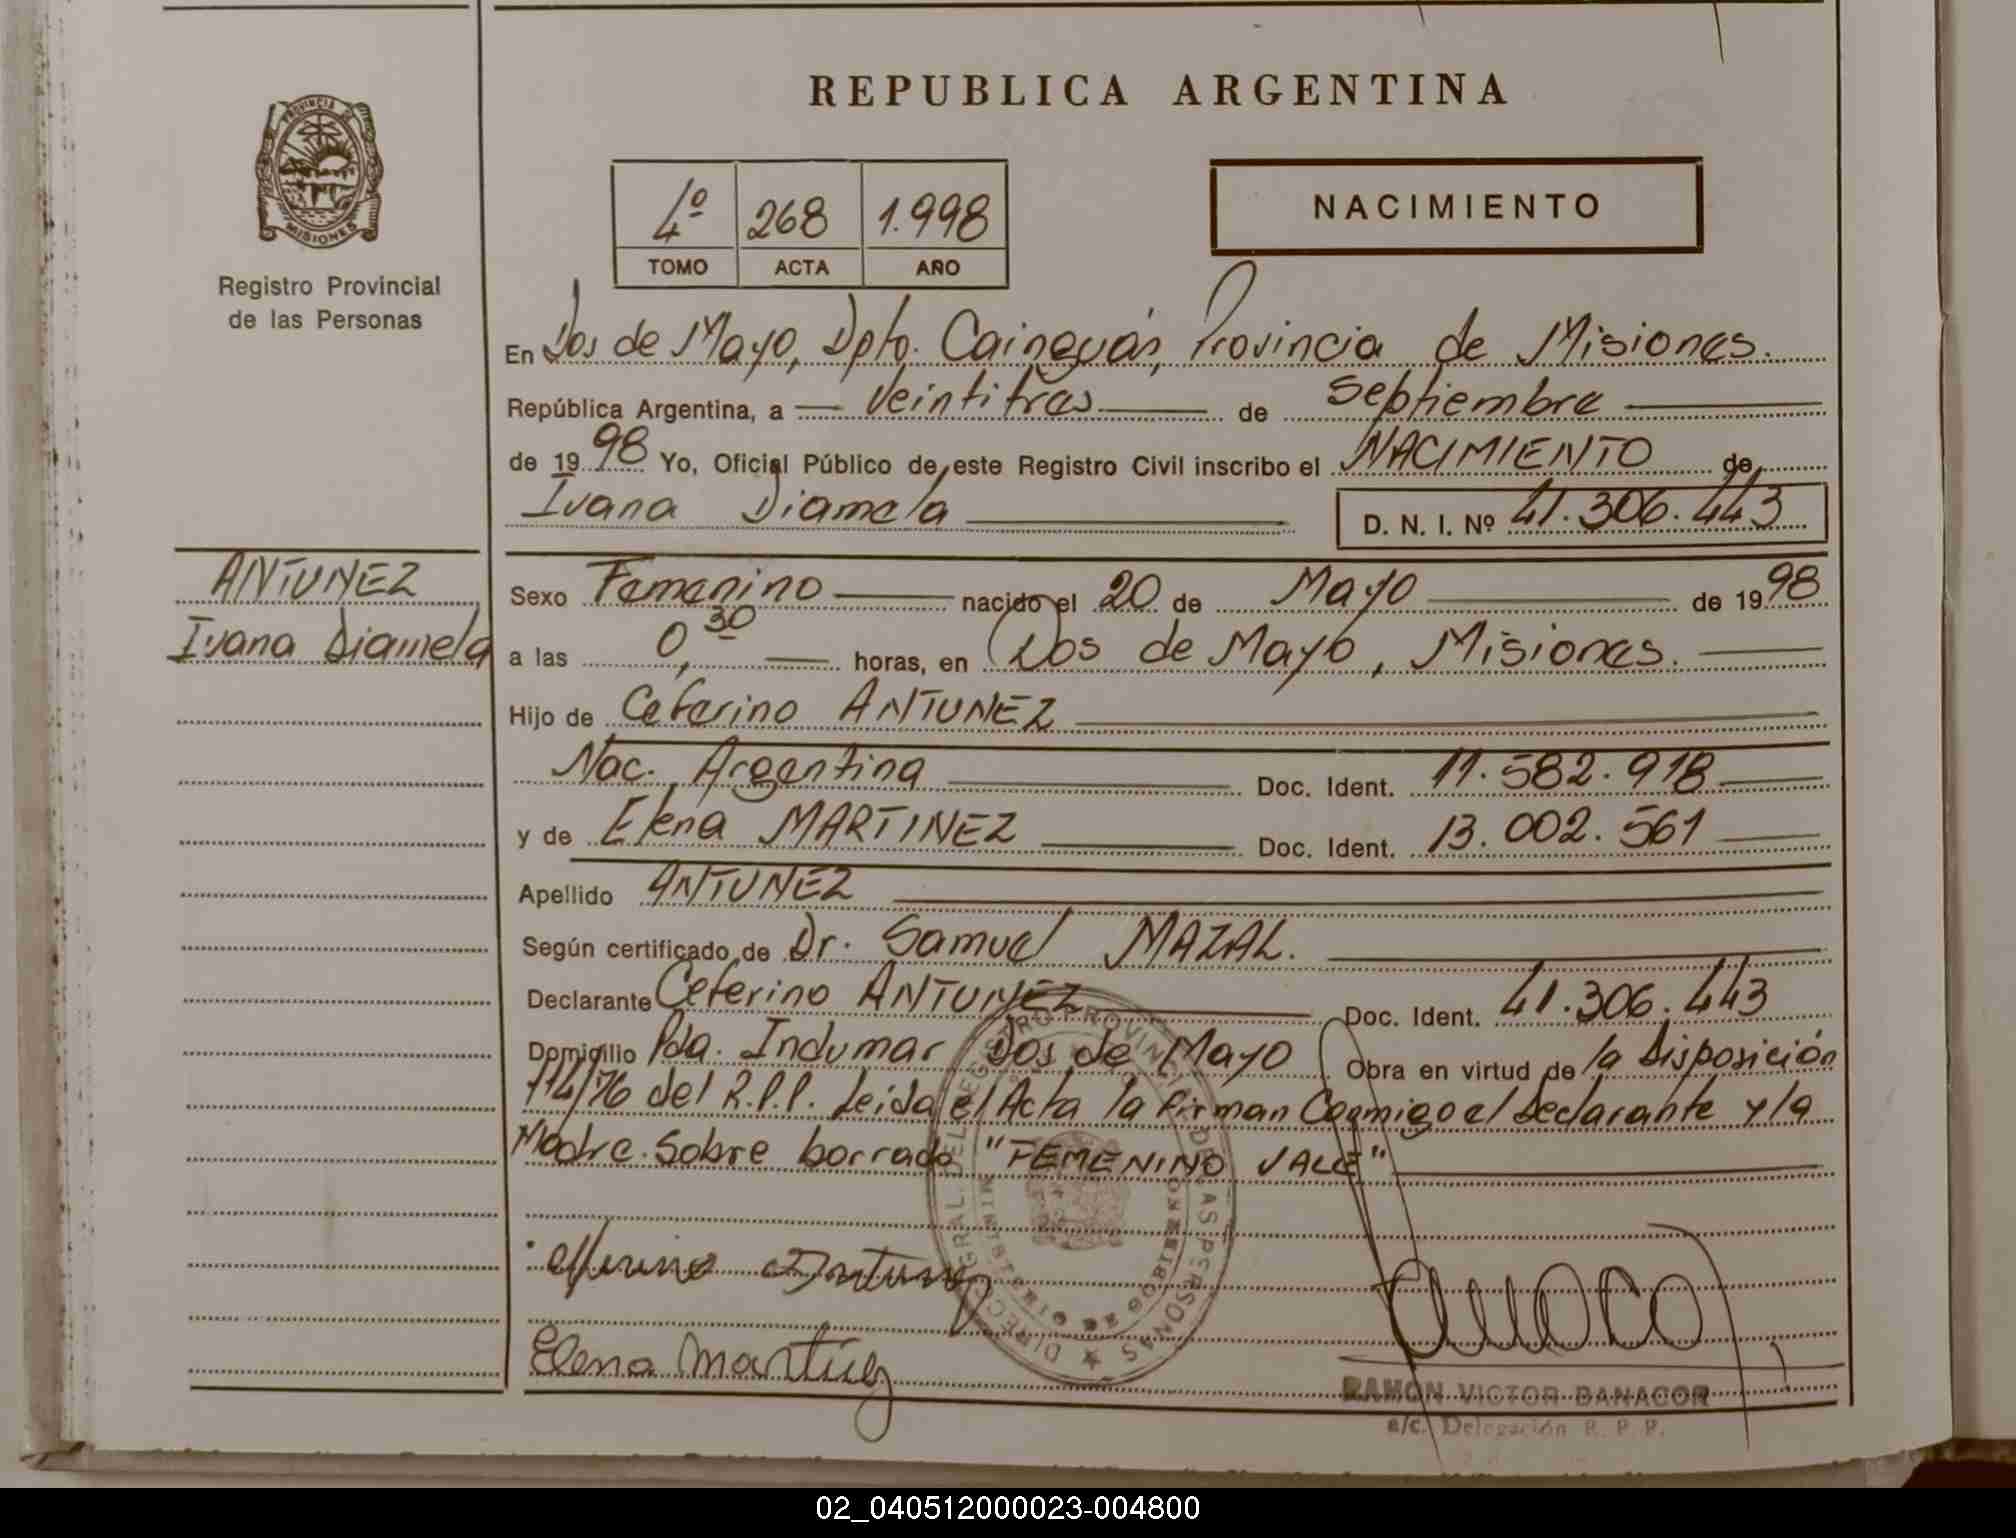 REPUBLICA ARGENTINA
PROVINCIA DE
MISIONES
Registro Provincial
de las Personas
4º 268 1.998
TOMO ACTA AÑO
NACIMIENTO
En Dos de Mayo, Dpto. Cainguás, Provincia de Misiones.
República Argentina, a veintitres de Septiembre
de 1998 Yo, Oficial Público de este Registro Civil inscribo el NACIMIENTO de
Ivana Diamela D. N. I. Nº 41.306.443
ANTUNEZ
Ivana Diamela
Sexo Femenino nacido el 20 de Mayo de 1998
a las 0,30 horas, en Dos de Mayo, Misiones.
Hijo de Ceferino ANTUNEZ
Nac. Argentina Doc. Ident. 11.582.918
y de Elena MARTINEZ Doc. Ident. 13.002.561
Apellido ANTUNEZ
Según certificado de Dr. Samuel MAZAL.
Declarante Ceferino ANTUNEZ Doc. Ident. 41.306.443
Domicilio Pda. Indumar Dos de Mayo Obra en virtud de la Disposición
114/76 del R.P.P. Leida el Acta la firman Conmigo el Declarante y la
Madre. Sobre borrado "FEMENINO VALE"
DIRECC. GRAL. DEL REGISTRO PROVINCIAL DE LAS PERSONAS
MINISTERIO DE GOBIERNO
Ceferino Antunez
Elena Martinez
RAMON VICTOR BANACOR
a/c. Delegación R. P. P.
02_040512000023-004800